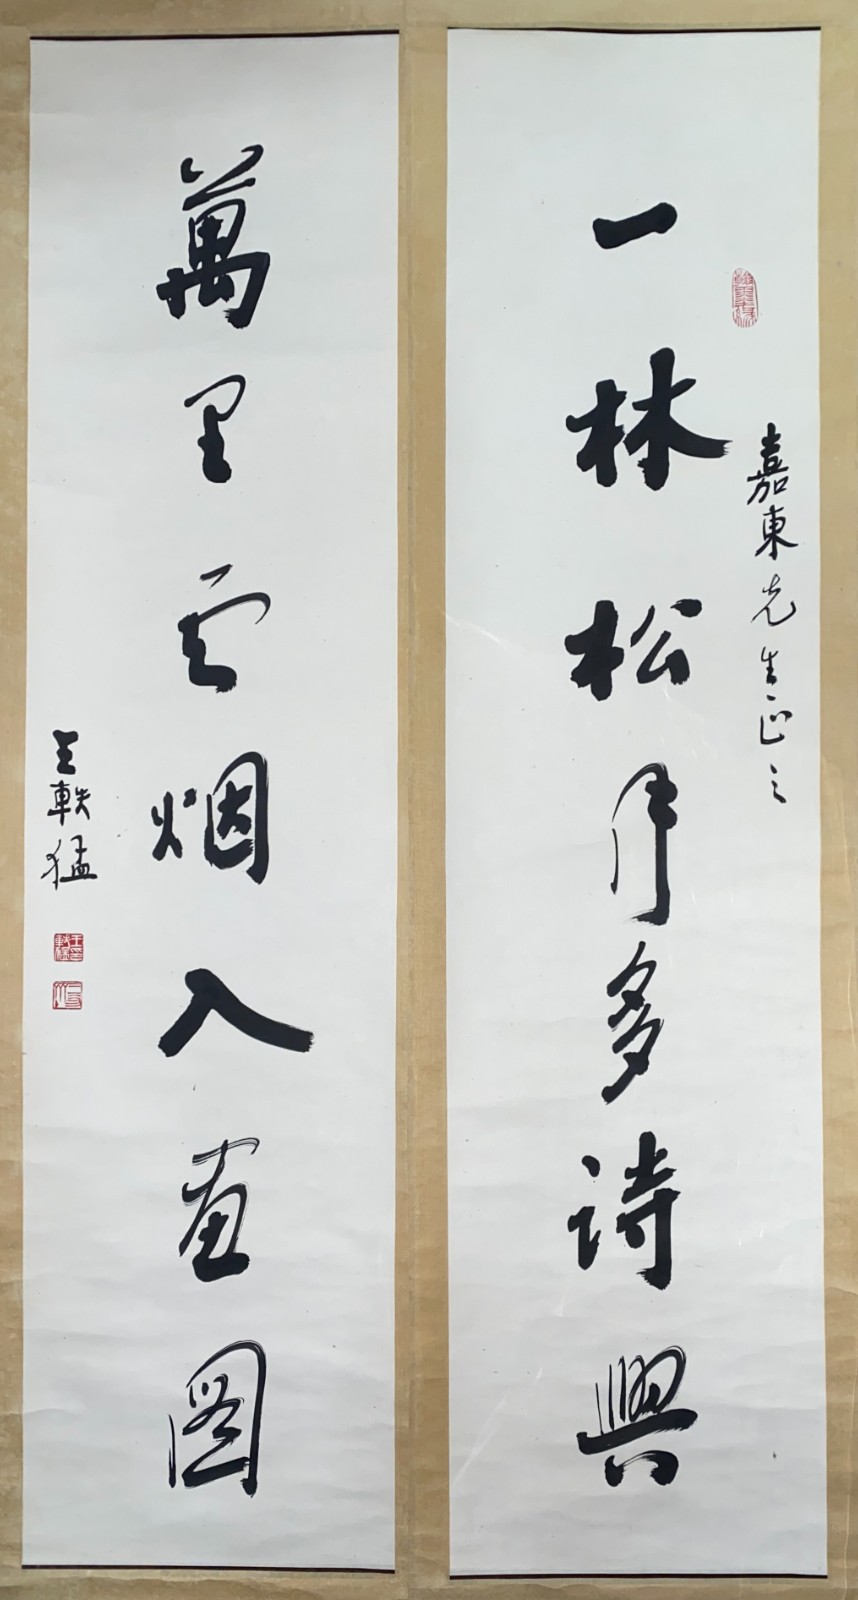 嘉東先生正之
一林松月多诗興
萬里云烟入畫图
王軼猛